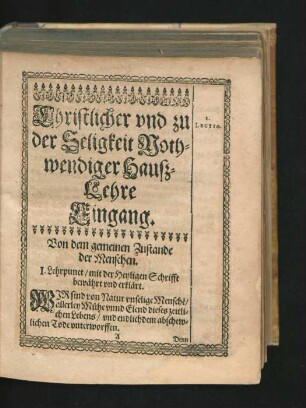 Christlicher vnd zu
der Seligkeit Noth-
wendiger Hauß-
Lehre
Eingang.
1.
LECTIO.
Von dem gemeinen Zustande
der Menschen.
I. Lehrpunct / mit der Heyligen Schrifft
bewährt vnd erklärt.
WIR sind von Natur vnselige Menschē /
allerley Mühe vnnd Elend dieses zeitli-
chen Lebens / vnd endlich dem abschew-
lichen Tode vnterworffen.
A
Denn